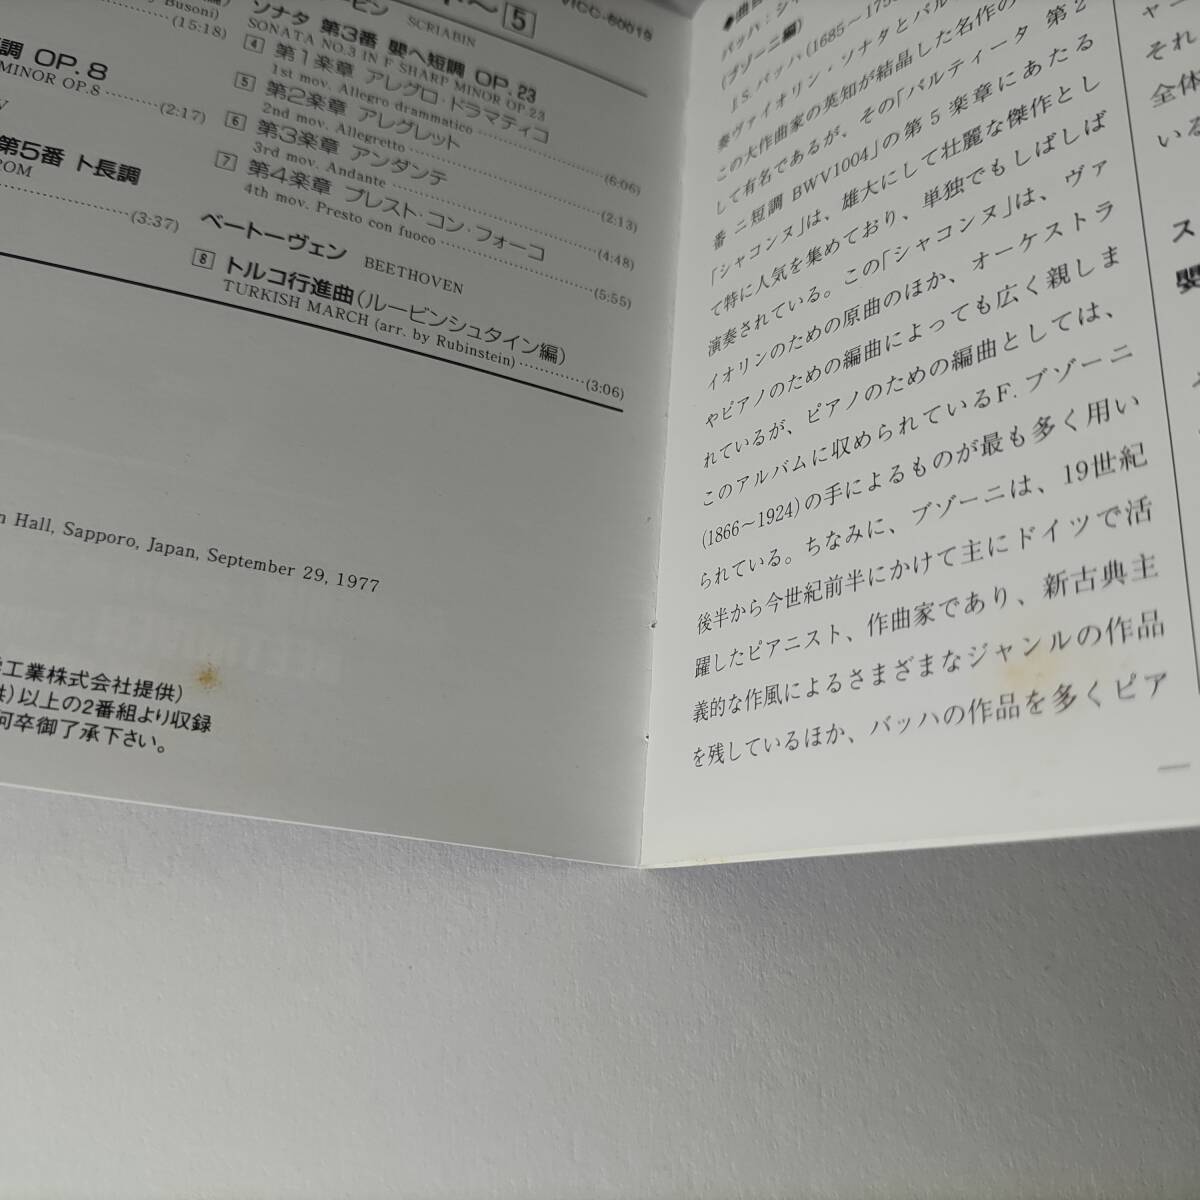 5
VICC-60019
Busoni)
(15:18)
調 OP.8
MINOR OP.8
(2:17)
第5番 ト長調
(3:37)
SCRIABIN
ソナタ 第3番 嬰ヘ短調 OP.23
SONATA NO.3 IN F SHARP MINOR OP.23
4 第1楽章 アレグロ・ドラマティコ
1st mov. Allegro drammatico (6:06)
5 第2楽章 アレグレット
2nd mov. Allegretto (2:13)
6 第3楽章 アンダンテ
3rd mov. Andante (4:48)
7 第4楽章 プレスト・コン・フォーコ
4th mov. Presto con fuoco (5:55)
ベートーヴェン BEETHOVEN
8 トルコ行進曲(ルービンシュタイン編)
TURKISH MARCH (arr. by Rubinstein) (3:06)
Hall, Sapporo, Japan, September 29, 1977
工業株式会社提供)
以上の2番組より収録
何卒御了承下さい。
(ブゾーニ編)
J.S.バッハ(1685～
奏ヴァイオリン・ソナタとパル
この大作曲家の英知が結晶した名作の
して有名であるが、その「パルティータ 第2
番 ニ短調 BWV1004」の第5楽章にあたる
「シャコンヌ」は、雄大にして壮麗な傑作とし
て特に人気を集めており、単独でもしばしば
演奏されている。この「シャコンヌ」は、ヴァ
イオリンのための原曲のほか、オーケストラ
やピアノのための編曲によっても広く親しま
れているが、ピアノのための編曲としては、
このアルバムに収められているF.ブゾーニ
(1866～1924)の手によるものが最も多く用い
られている。ちなみに、ブゾーニは、19世紀
後半から今世紀前半にかけて主にドイツで活
躍したピアニスト、作曲家であり、新古典主
義的な作風によるさまざまなジャンルの作品
を残しているほか、バッハの作品を多くピア
それ
全体
いる